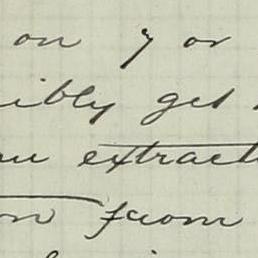 on 7 or
ibly get
extract
from